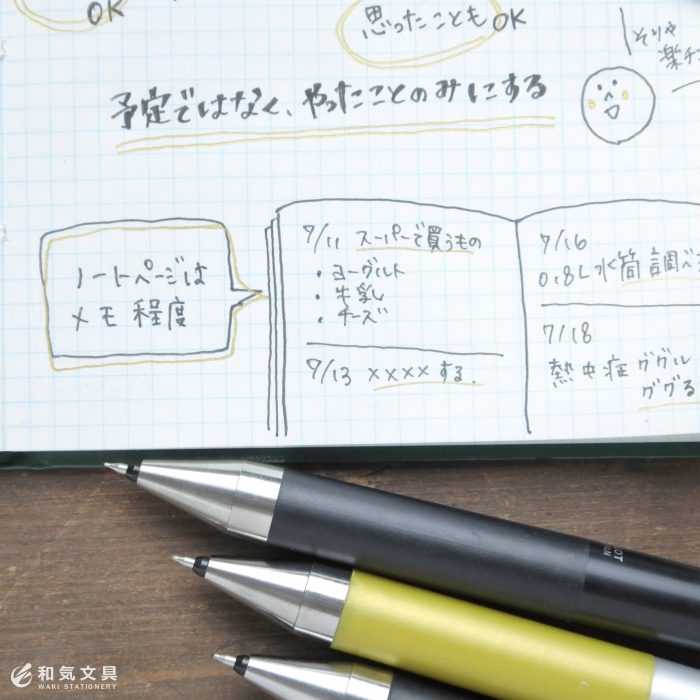 OK
思ったことも OK
そりゃ
楽チ
予定ではなく、やったことのみにする
ノートページは
メモ程度
7/11 スーパーで買うもの
・ヨーグルト
・牛乳
・チーズ
7/13 ××××する.
7/16
0.8L水筒調べ
7/18
熱中症ググル
ググる
和気文具
WAKI STATIONERY